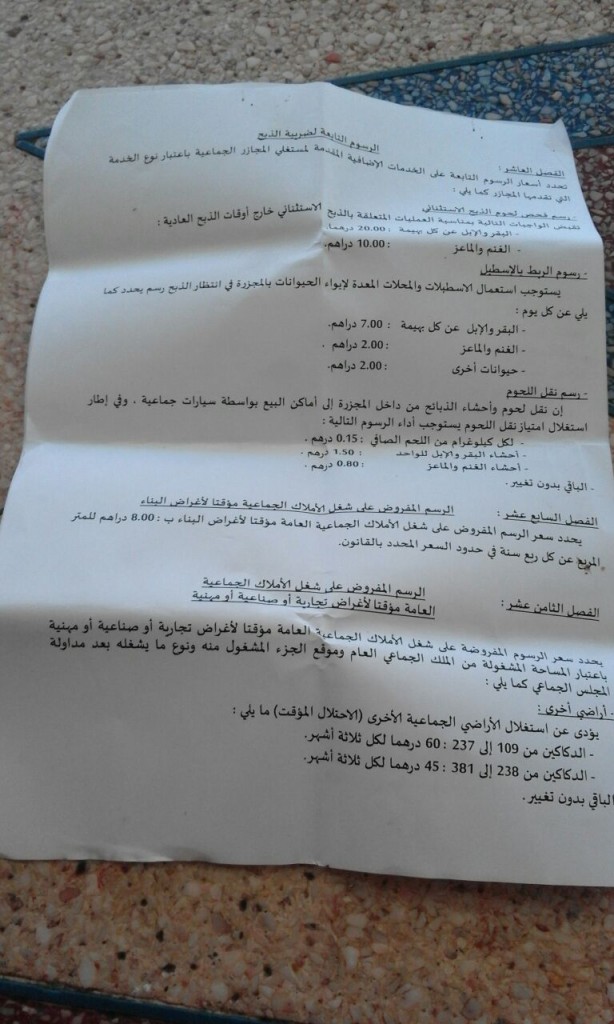 الرسوم التابعة لضريبة الذبح
الفصل العاشر :
تحدد أسعار الرسوم التابعة على الخدمات الإضافية المقدمة لمستغلي المجازر الجماعية باعتبار نوع الخدمة
التي تقدمها المجازر كما يلي :
- رسم فحص لحوم الذبح الاستثنائي
تقبض الواجبات التالية بمناسبة العمليات المتعلقة بالذبح الاستثنائي خارج أوقات الذبح العادية :
- البقر والإبل عن كل بهيمة : 20.00 درهما.
- الغنم والماعز : 10.00 دراهم.
- رسوم الربط بالإسطبل
يستوجب استعمال الاسطبلات والمحلات المعدة لإيواء الحيوانات بالمجزرة في انتظار الذبح رسم يحدد كما
يلي عن كل يوم :
- البقر والإبل عن كل بهيمة : 7.00 دراهم.
- الغنم والماعز : 2.00 دراهم .
- حيوانات أخرى : 2.00 دراهم.
- رسم نقل اللحوم
إن نقل لحوم وأحشاء الذبائح من داخل المجزرة إلى أماكن البيع بواسطة سيارات جماعية . وفي إطار
استغلال امتياز نقل اللحوم يستوجب أداء الرسوم التالية :
- لكل كيلوغرام من اللحم الصافي : 0.15 درهم .
- أحشاء البقر والإبل للواحد : 1.50 درهم .
- أحشاء الغنم والماعز : 0.80 درهم .
- الباقي بدون تغيير .
الفصل السابع عشر : الرسم المفروض على شغل الأملاك الجماعية مؤقتا لأغراض البناء
يحدد سعر الرسم المفروض على شغل الأملاك الجماعية العامة مؤقتا لأغراض البناء ب : 8.00 دراهم للمتر
المربع عن كل ربع سنة في حدود السعر المحدد بالقانون.
الرسم المفروض على شغل الأملاك الجماعية
الفصل الثامن عشر : العامة مؤقتا لأغراض تجارية أو صناعية أو مهنية
يحدد سعر الرسوم المفروضة على شغل الأملاك الجماعية العامة مؤقتا لأغراض تجارية أو صناعية أو مهنية
باعتبار المساحة المشغولة من الملك الجماعي العام وموقع الجزء المشغول منه ونوع ما يشغله بعد مداولة
المجلس الجماعي كما يلي :
- أراضي أخرى :
يؤدى عن استغلال الأراضي الجماعية الأخرى (الاحتلال المؤقت) ما يلي :
- الدكاكين من 109 إلى 237 : 60 درهما لكل ثلاثة أشهر.
- الدكاكين من 238 إلى 381 : 45 درهما لكل ثلاثة أشهر.
الباقي بدون تغيير .